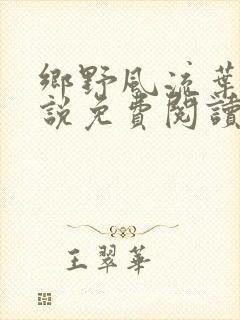 鄉野風流葉
說免費閱讀
王翠華